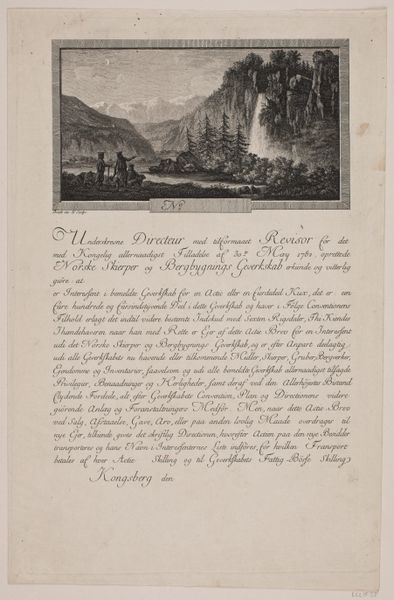 No
Underskrevne Directeur med tilforordnet Revisor for det
med Kongelig allernaadigst Tilladelse af 30te May 1782 oprettede
Norske Skierper og Bergbygnings Gverkskab erkende og vitterlig
giøre: at
er Interessent i bemeldte Gverkskab for en Actie eller en
det er: en
hundrede og
Deel i dette Gverkskab og haver i Følge Conventionens
erlagt det indtil videre bestemte Indskud med Sexten Rigsdaler, Thi Kiendes
Ihændehaveren naar han med Rette er Eyer af dette Actie Brev for en Interessent
udi det Norske Skierper og Bergbygnings Gverkskab, og er efter Anpart deelagtig
udi alle Gverkskabets nu havende eller tilkommende Midler, Skierper, Gruber, Bergverker,
Eyendomme og Inventarier, saavelsom og udi alle bemeldte Gverkskab allernaadigst tillagde
Privilegier, Benaadninger og Herligheder, samt deraf ved den Allerhøyestes Bistand
flydende Fordele, alt efter Gverkskabets Convention, Plan og Directionens videre
giørende Anlæg og Foranstaltninger Medfør. Men, naar dette Actie Brev
ved Salg, Afstaaelse, Gave, Arv, eller paa anden lovlig Maade overdrages til
nye Eyer, tilkiende gives det skriftlig Directionen, hvorefter Actien paa den nye Besidder
transporteres og hans Navn i Interessenternes Liste indføres, for hvilken Transport
betales af hver Actie Skilling og til Gverkskabets Fattig-Bøsse Skilling
Kongsberg den